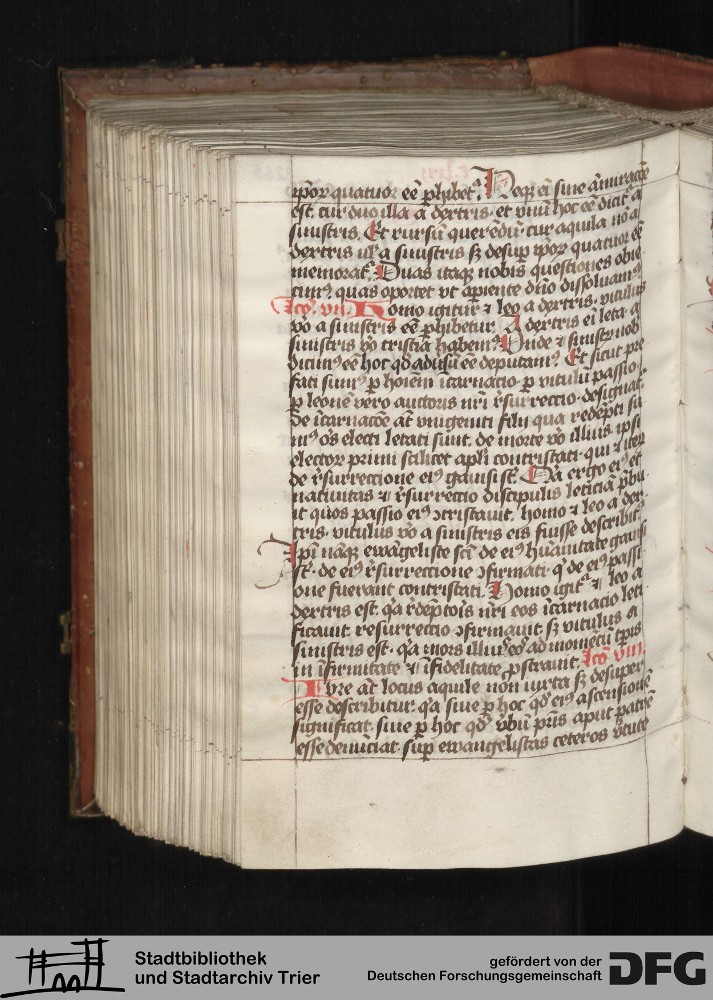 ip̄or quatuor eē ꝓhibet᷑. Neqꝫ ei͛ sine ām̄iracōe
est. cur duo illa a dextris. et vnū hoc eē dicit᷑ a
sinistris. Et rursū querēdū cur aquila nō a
dextris ul̓ a sinistris sꝫ desup ip̄or quatuor eē
memorat᷑. Duas itaqꝫ nobis questiones obie
cim᷒. quas oportet vt aꝑiente dn̄o dissoluam᷒.
lcō. vii. Homo igitur ⁊ leo a dextris. vitulus
vō a sinistris eē ꝓhibetur. A dextris ei͛ leta. a
sinistris vō tristia habem᷒. Unde ⁊ sinistrꝫ nob̓
dicim᷒ eē hoc qđ adūsū eē deputam᷒. Et sicut pre
fati sum᷒ ꝑ hoīem īcarnacio. ꝑ vitulū passio.
ꝑ leonē vero auctoris nr̄i r̄surrectio designat᷑.
De īcarnacōe at̄ vnigeniti filij qua redēpti su
m᷒ oēs electi letati sunt. de morte vō illius. ipsi
electoꝝ primi scilicet apl̓i contristati. qui ⁊ iteꝝ
de r̄surrectione ei᷒ gauisi st̄. Q̇a ergo ei᷒ et
natiuitas ⁊ r̄surrectio discipulis leticiā p̄bu
it quos passio ei᷒ ꝯtristauit. homo ⁊ leo a dex
tris. vitulus vō a sinistris eis fuisse describit᷑.
Ip̄i nāqꝫ ewāgeliste scī de ei᷒ hūanitate gauisi
st̄. de ei᷒ r̄surrectione ꝯfirmati. q̇ de ei᷒ passi
one fuerant contristati. Homo igit᷑ ⁊ leo a
dextris est. q̇a r̄dēptoris nr̄i eos īcarnacio leti
ficauit. resurrectio ꝯfirmauit. sꝫ vitulus a
sinistris est. q̇a mors illius eos ad momētū tp̄is
in īfirmitate ⁊ īfidelitate ꝓstrauit. lcō viii.
Iure at̄ locus aquile non iuxta sꝫ desuper
esse describitur. q̇a siue ꝑ hoc qđ ei᷒ ascensionē
significat. siue ꝑ hoc qđ v̄bū pr̄is aput patrē
esse denūciat. suꝑ ewangelistas ceteros v̄tute
Stadtbibliothek
und Stadtarchiv Trier
gefördert von der
Deutschen Forschungsgemeinschaft
DFG